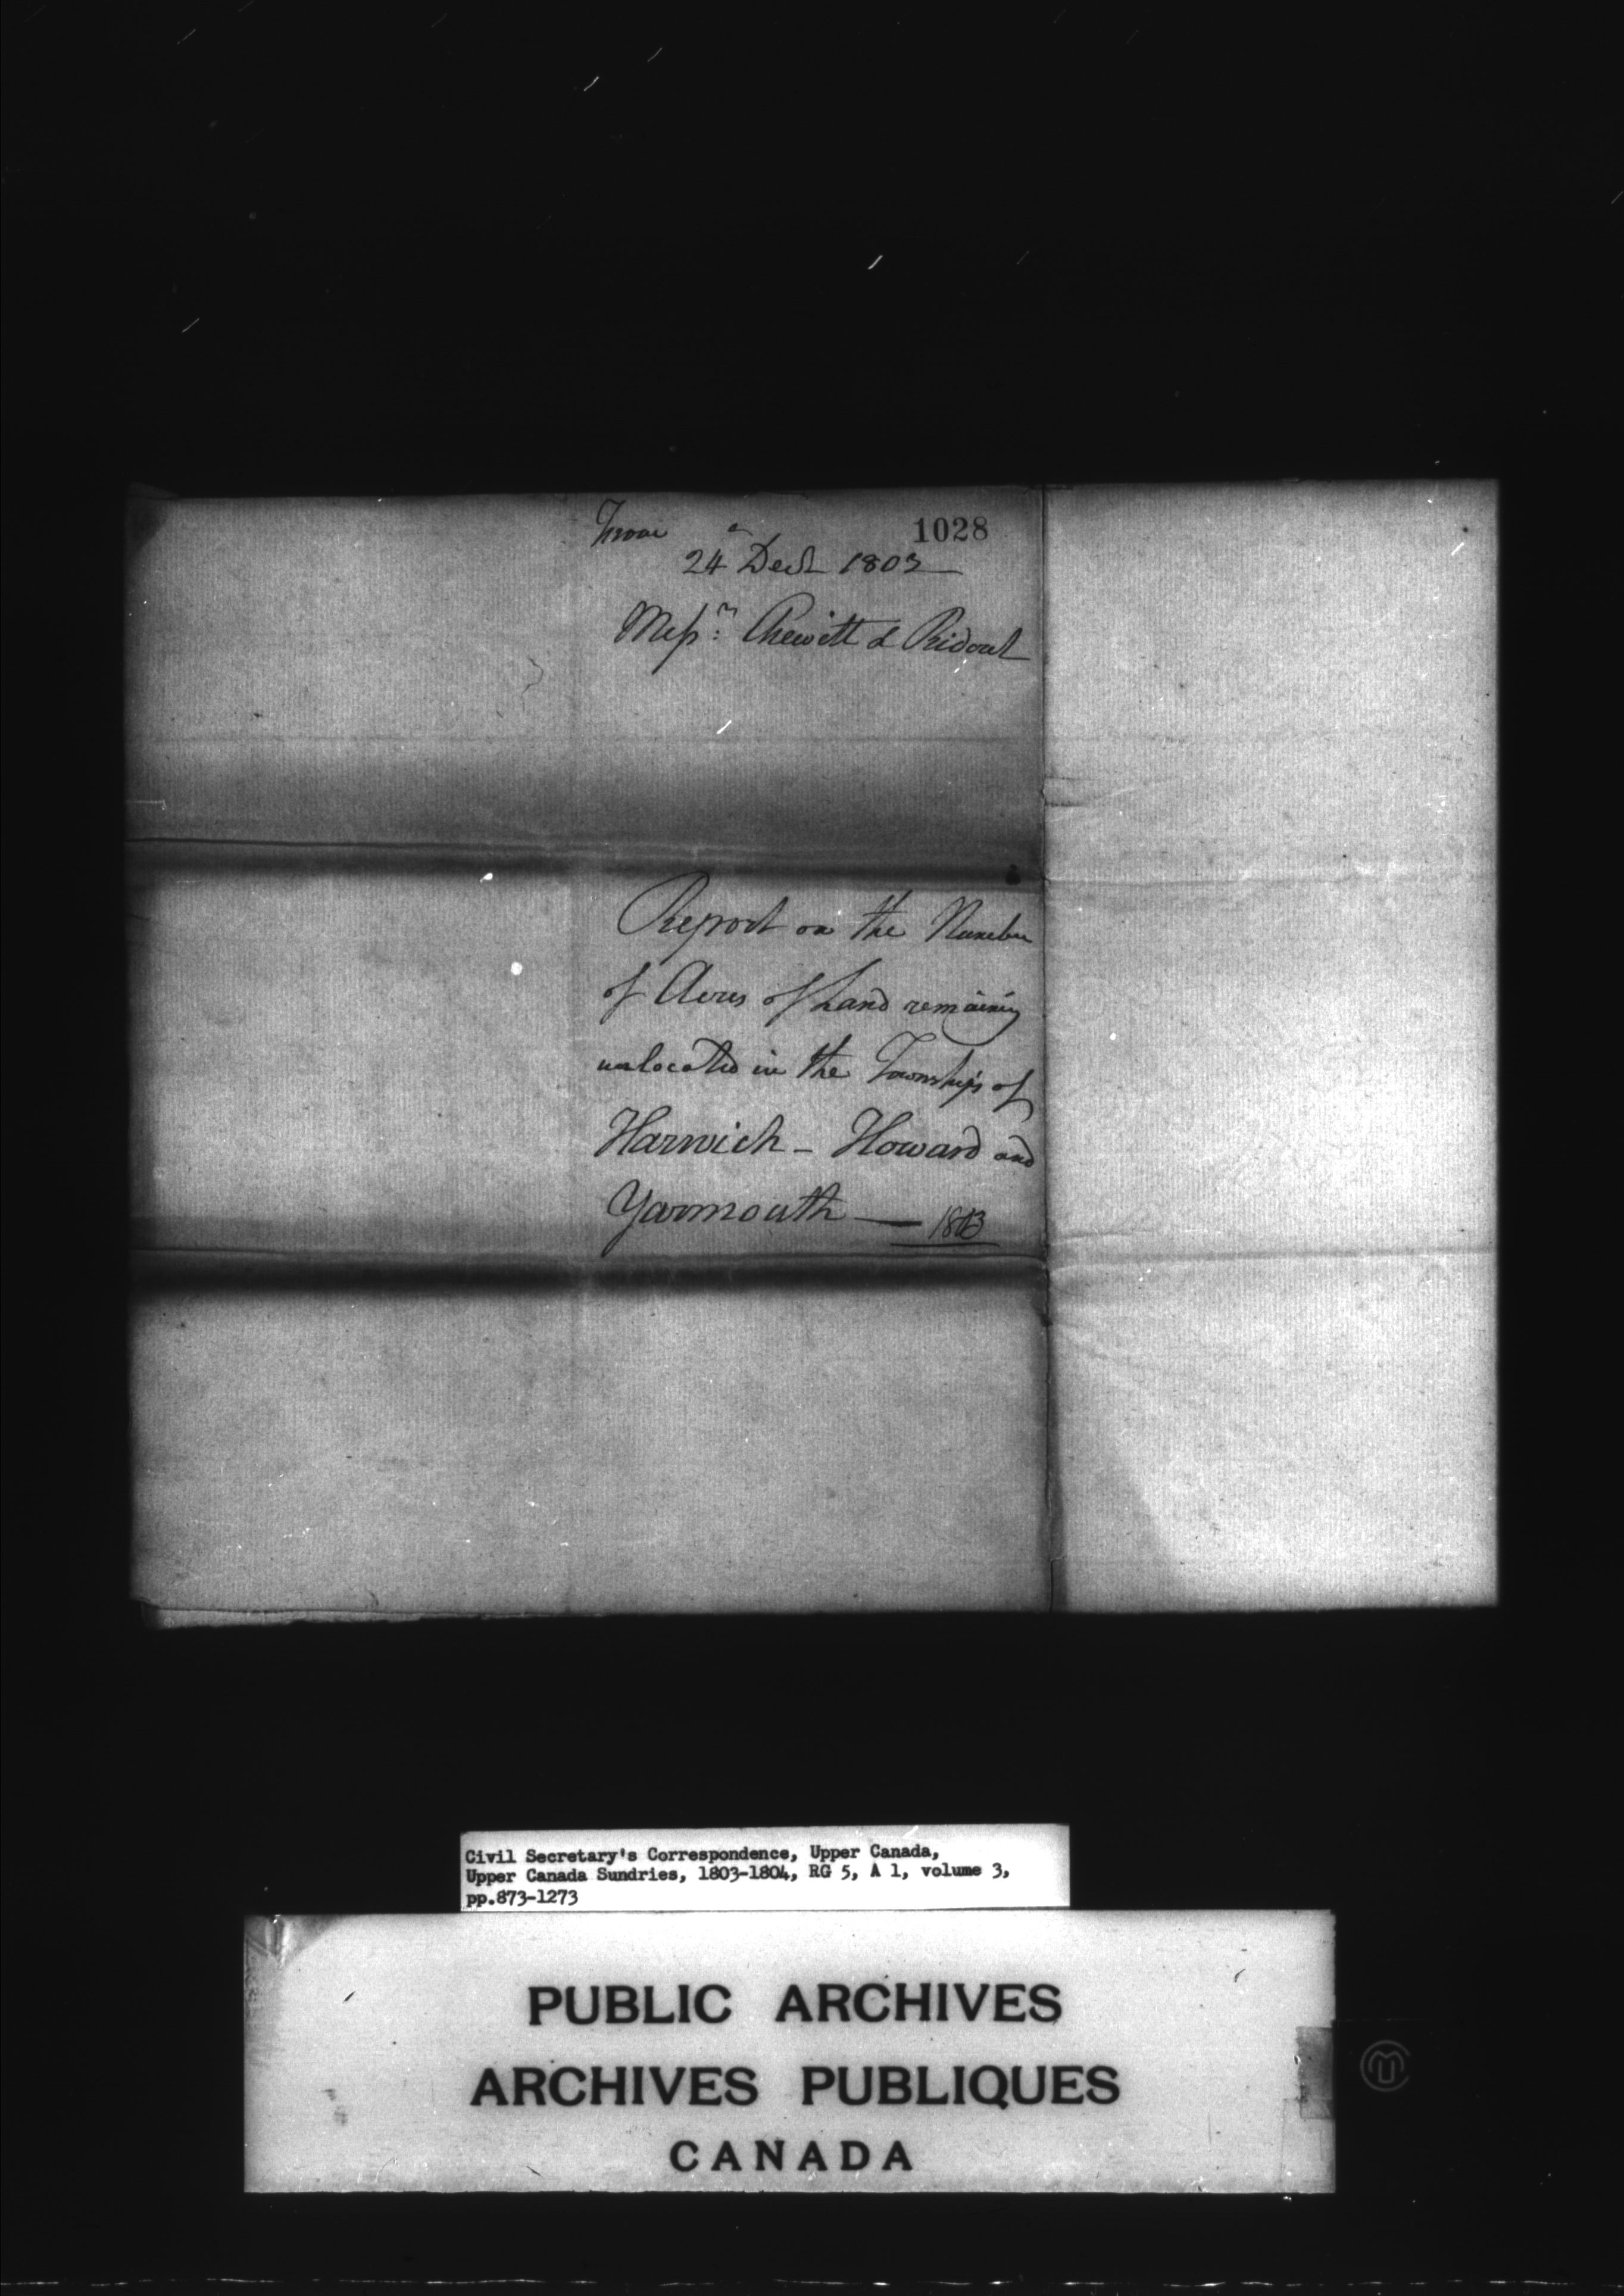 From
1028
24 Decr 1803
Messrs: Chewitt & Ridout
Report on the Number
of Acres of Land remaining
unlocated in the Townships of
Harwich - Howard and
Yarmouth — 1803
Civil Secretary's Correspondence, Upper Canada,
Upper Canada Sundries, 1803-1804, RG 5, A 1, volume 3,
pp.873-1273
PUBLIC ARCHIVES
ARCHIVES PUBLIQUES
CANADA